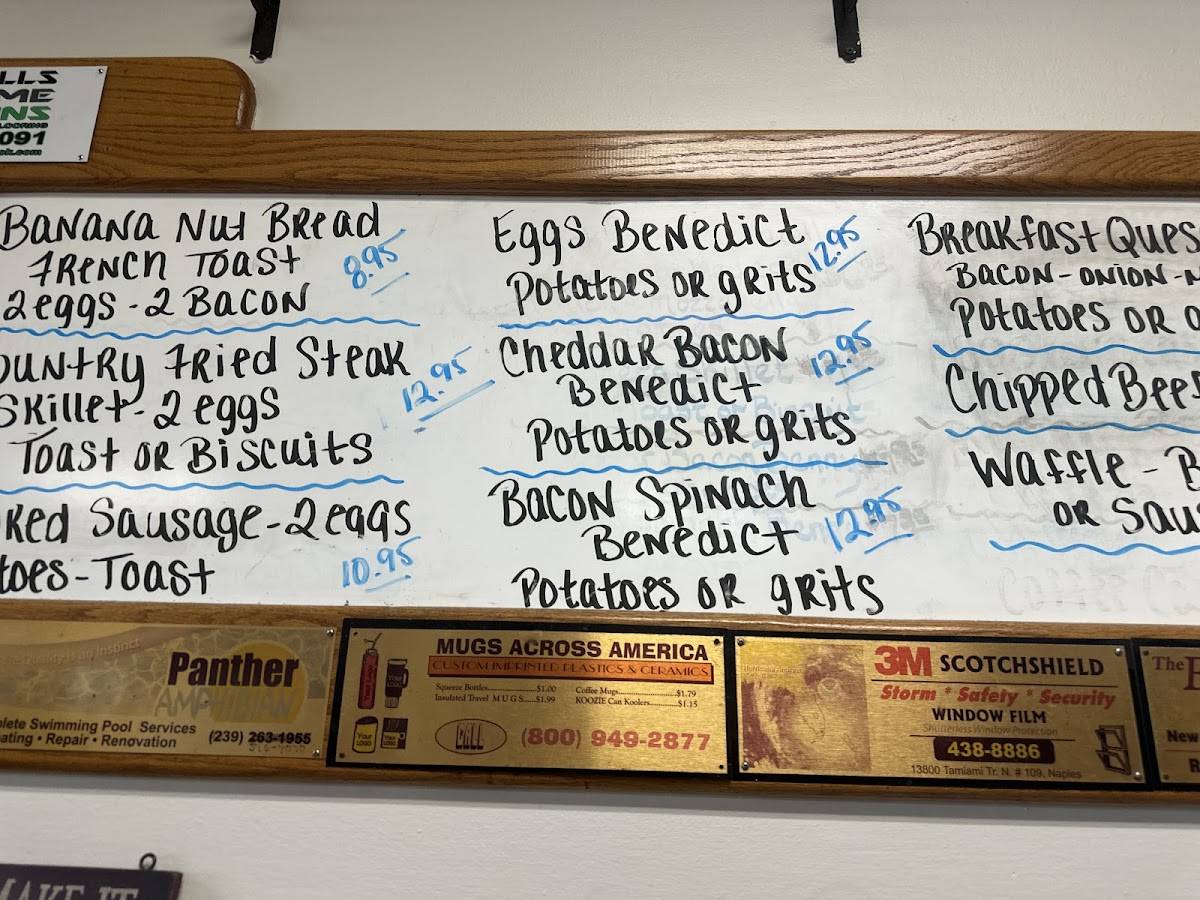 LLS
ME
NS
091
BANANA NUT BREAD
FRENCH TOAST 8.95
2 eggs - 2 BACON
OUNTRY FRIED STEAK
SKILLET - 2 eggS 12.95
TOAST OR BISCUITS
KED SAUSAGE - 2 eggS
TOES - TOAST 10.95
EGGS BENEDICT 12.95
POTATOES OR GRITS
CHEDDAR BACON 12.95
BENEDICT
POTATOES OR GRITS
BACON SPINACH
BENEDICT 12.95
POTATOES OR GRITS
BREAKFAST QUES
BACON - ONION -
POTATOES OR
CHIPPED BEE
WAFFLE - B
OR SAU
Quality is an Instinct
Panther
plete Swimming Pool Services
ating • Repair • Renovation (239) 263-1955
MUGS ACROSS AMERICA
CUSTOM IMPRINTED PLASTICS & CERAMICS
Squeeze Bottles $1.00 Coffee Mugs $1.79
Insulated Travel MUGS $1.99 KOOZIE Can Koolers $1.15
Your LOGO
CALL (800) 949-2877
3M SCOTCHSHIELD
Storm * Safety * Security
WINDOW FILM
Shutterless Window Protection
438-8886
13800 Tamiami Tr. N. # 109, Naples
The
New
R
MAKE IT